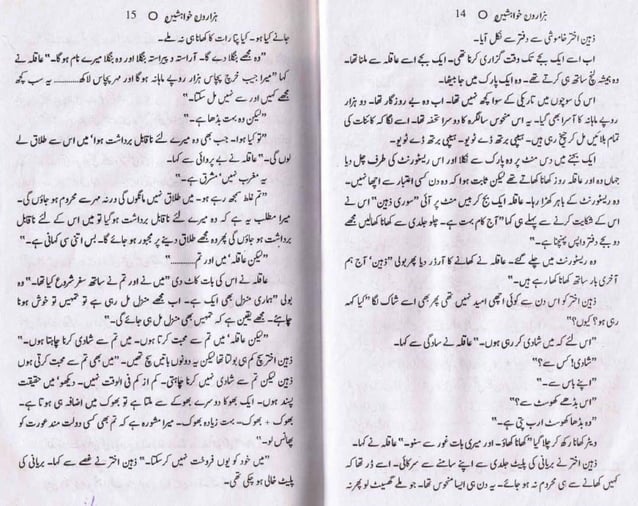 ہزاروں خواہشیں O 14
ذہین اختر خاموشی سے دفتر سے نکل آیا۔
اب اسے ایک بجے تک وقت گزاری کرنا تھی۔ ایک بجے اسے عاقلہ سے ملنا تھا۔
وہ ہمیشہ لنچ ساتھ ہی کرتے تھے۔ وہ ایک پارک میں جا بیٹھا۔
اس کی سوچوں میں تاریکی کے سوا کچھ نہیں تھا۔ اب وہ بے روزگار تھا۔ دو ہزار
روپے ماہانہ کا آسرا بھی گیا۔ یہ اس منحوس سالگرہ کا دوسرا تحفہ تھا۔ اسے لگا کہ کائنات کی
تمام بلائیں مل کر چیخ رہی ہیں۔ ہیپی برتھ ڈے ٹویو۔ ہیپی برتھ ڈے ٹویو۔
ایک بجنے میں دس منٹ پر وہ پارک سے نکلا اور اس ریسٹورنٹ کی طرف چل دیا
جہاں وہ اور عاقلہ روز کھانا کھاتے تھے لیکن ثابت ہوا کہ وہ دن کسی اعتبار سے اچھا نہیں۔
وہ ریسٹورنٹ کے باہر کھڑا رہا۔ عاقلہ ایک بج کر بیس منٹ پر آئی "سوری ذہین" اس نے
اس کے شکایت کرنے سے پہلے ہی کہا "آج کام بہت ہے۔ چلو جلدی سے کھانا کھالیں مجھے
دو بجے دفتر واپس پہنچنا ہے۔"
وہ ریسٹورنٹ میں چلے گئے۔ عاقلہ نے کھانے کا آرڈر دیا پھر بولی "ذہین' آج ہم
آخری بار ساتھ کھانا کھا رہے ہیں۔"
ذہین اختر کو اس دن سے کوئی اچھی امید نہیں تھی پھر بھی اسے شاک لگا "کیا کہہ
رہی ہو؟ کیوں؟"
"اس لئے کہ میں شادی کر رہی ہوں۔" عاقلہ نے سادگی سے کہا۔
"شادی! کس سے؟"
"اپنے باس سے۔"
"اس بڈھے کھوسٹ سے؟"
"وہ بڈھا کھوسٹ ارب پتی ہے۔"
ویٹر کھانا رکھ کر چلا گیا "کھانا کھاؤ۔ اور میری بات غور سے سنو۔" عاقلہ نے کہا۔
ذہین اختر نے بریانی کی پلیٹ جلدی سے اپنے سامنے سے سرکالی۔ اسے ڈر تھا کہ
کہیں کھانے سے ہی محروم نہ ہو جائے۔ یہ دن ہی ایسا منحوس تھا۔ جو ملے گھسیٹ لو پھر نہ
ہزاروں خواہشیں O 15
جانے کیا ہو۔ کیا پتا رات کا کھانا ہی نہ ملے۔
"وہ مجھے بنگلا دے گا۔ آراستہ و پیراستہ بنگلا اور وہ بنگلا میرے نام ہو گا۔" عاقلہ نے
کہا "میرا جیب خرچ پچاس ہزار روپے ماہانہ ہو گا اور مہر پچاس لاکھ............ یہ سب کچھ
مجھے کہیں اور سے نہیں مل سکتا۔"
"لیکن وہ بہت بڈھا ہے۔"
"تو کیا ہوا۔ جب بھی وہ میرے لئے ناقابل برداشت ہوا' میں اس سے طلاق لے
لوں گی۔" عاقلہ نے بے پروائی سے کہا۔
"یہ مغرب نہیں' مشرق ہے۔"
"تم غلط سمجھ رہے ہو۔ میں طلاق نہیں مانگوں گی ورنہ مہر سے محروم ہو جاؤں گی۔
میرا مطلب یہ ہے کہ وہ میرے لئے ناقابل برداشت ہو گیا تو میں اس کے لئے ناقابل
برداشت ہو جاؤں گی پھر وہ مجھے طلاق دینے پر مجبور ہو جائے گا۔ بس اتنی سی کہانی ہے۔"
"لیکن عاقلہ' میں اور تم............"
عاقلہ نے اس کی بات کاٹ دی "میں نے اور تم نے ساتھ سفر شروع کیا تھا۔" وہ
بولی "ہماری منزل بھی ایک ہے۔ اب مجھے منزل مل رہی ہے تو تمہیں تو خوش ہونا
چاہئے۔ مجھے یقین ہے کہ تمہیں بھی منزل مل ہی جائے گی۔"
"لیکن عاقلہ' میں تم سے محبت کرتا ہوں۔ میں تم سے شادی کرنا چاہتا ہوں۔"
ذہین اختر سچ کم ہی بولتا تھا لیکن یہ دونوں باتیں سچ تھیں۔ "میں بھی تم سے محبت کرتی ہوں
ذہین لیکن تم سے شادی نہیں کرنا چاہتی۔ کم از کم فی الوقت نہیں۔ دیکھو' میں حقیقت
پسند ہوں۔ ایک بھوکا دوسرے بھوکے سے ملتا ہے تو بھوک میں اضافہ ہی ہوتا ہے۔
بھوک + بھوک۔ بہت زیادہ بھوک۔ میرا مشورہ ہے کہ تم بھی کسی دولت مند عورت کو
پھانس لو۔"
"میں خود کو یوں فروخت نہیں کر سکتا۔" ذہین اختر نے غصے سے کہا۔ بریانی کی
پلیٹ خالی ہو چکی تھی۔